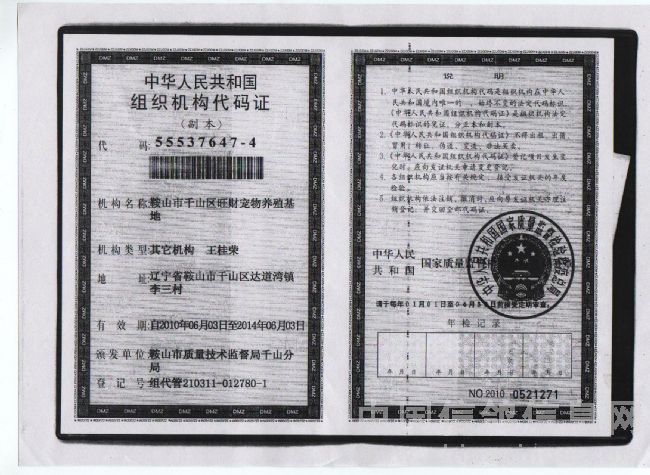 中华人民共和国
组织机构代码证
（副本）
代 码：55537647-4
机构名称：鞍山市千山区旺财宠物养殖基
地
机构类型：其它机构 王桂荣
地 址：辽宁省鞍山市千山区达道湾镇
李三村
有 效 期：自2010年06月03日至2014年06月03日
颁发单位：鞍山市质量技术监督局千山分
局
登 记 号：组代管210311-012780-1
说 明
1. 中华人民共和国组织机构代码是组织机构在中华人
民共和国境内唯一的、始终不变的法定代码标识，
《中华人民共和国组织机构代码证》是组织机构法定
代码标识的凭证，分正本和副本。
2.《中华人民共和国组织机构代码证》不得出租、出借、
冒用、转让、伪造、变造、非法买卖。
3.《中华人民共和国组织机构代码证》登记项目发生变
化时，应向发证机关申请变更登记。
4. 各组织机构应当按有关规定，接受发证机关的年度
检验。
5. 组织机构依法注销、撤消时，应向原发证机关办理注
销登记，并交回全部代码证。
中华人民
共和国 国家质量监
请于每年01月01日至04月
年检记录
年 月 日 年 月 日 年 月 日 年 月 日
NO.2010 0521271